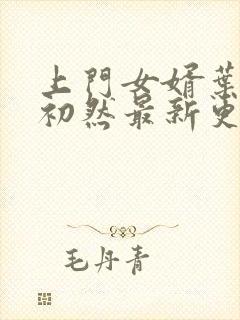 上門女婿葉
初然最新更
毛丹青